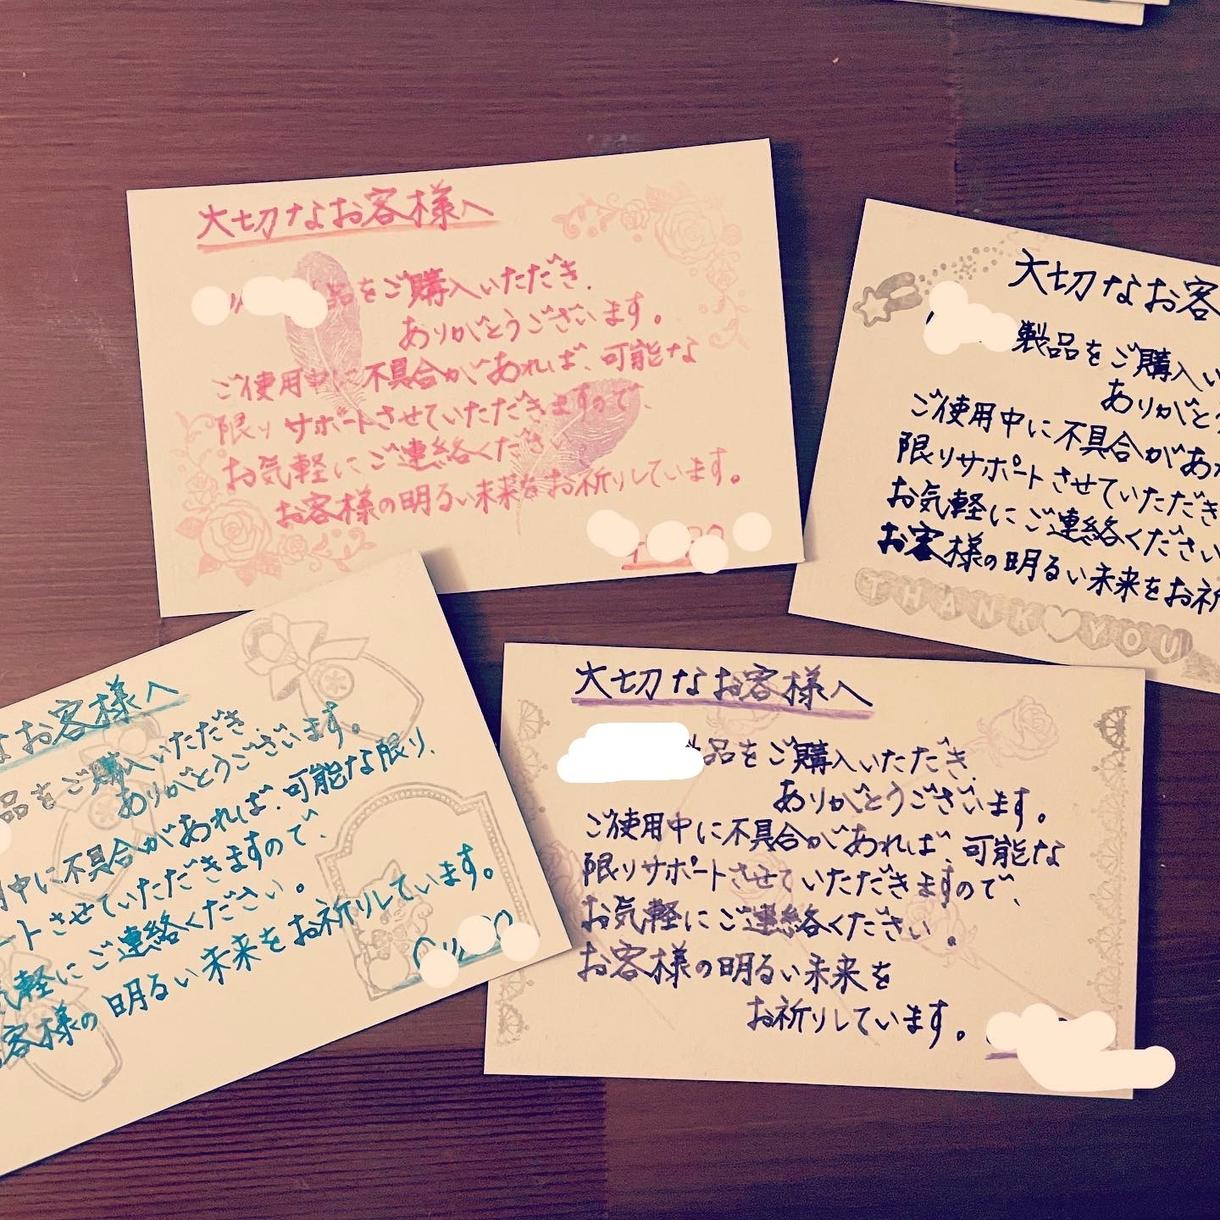 大切なお客様へ
品をご購入いただき、
ありがとうございます。
ご使用中に不具合があれば、可能な
限りサポートさせていただきますので、
お気軽にご連絡くださ
お客様の明るい未来をお祈りしています。
大切なお客
製品をご購入い
ありがとう
ご使用中に不具合があれ
限りサポートさせていただき
お気軽にご連絡ください
お客様の明るい未来をお祈
THANK♥YOU
なお客様へ
品をご購入いただき
ありがとうございます。
用中に不具合があれば、可能な限り、
ートさせていただきますので、
気軽にご連絡ください。
客様の明るい未来をお祈りしています。
大切なお客様へ
品をご購入いただき、
ありがとうございます。
ご使用中に不具合があれば、可能な
限りサポートさせていただきますので、
お気軽にご連絡ください。
お客様の明るい未来を
お祈りしています。